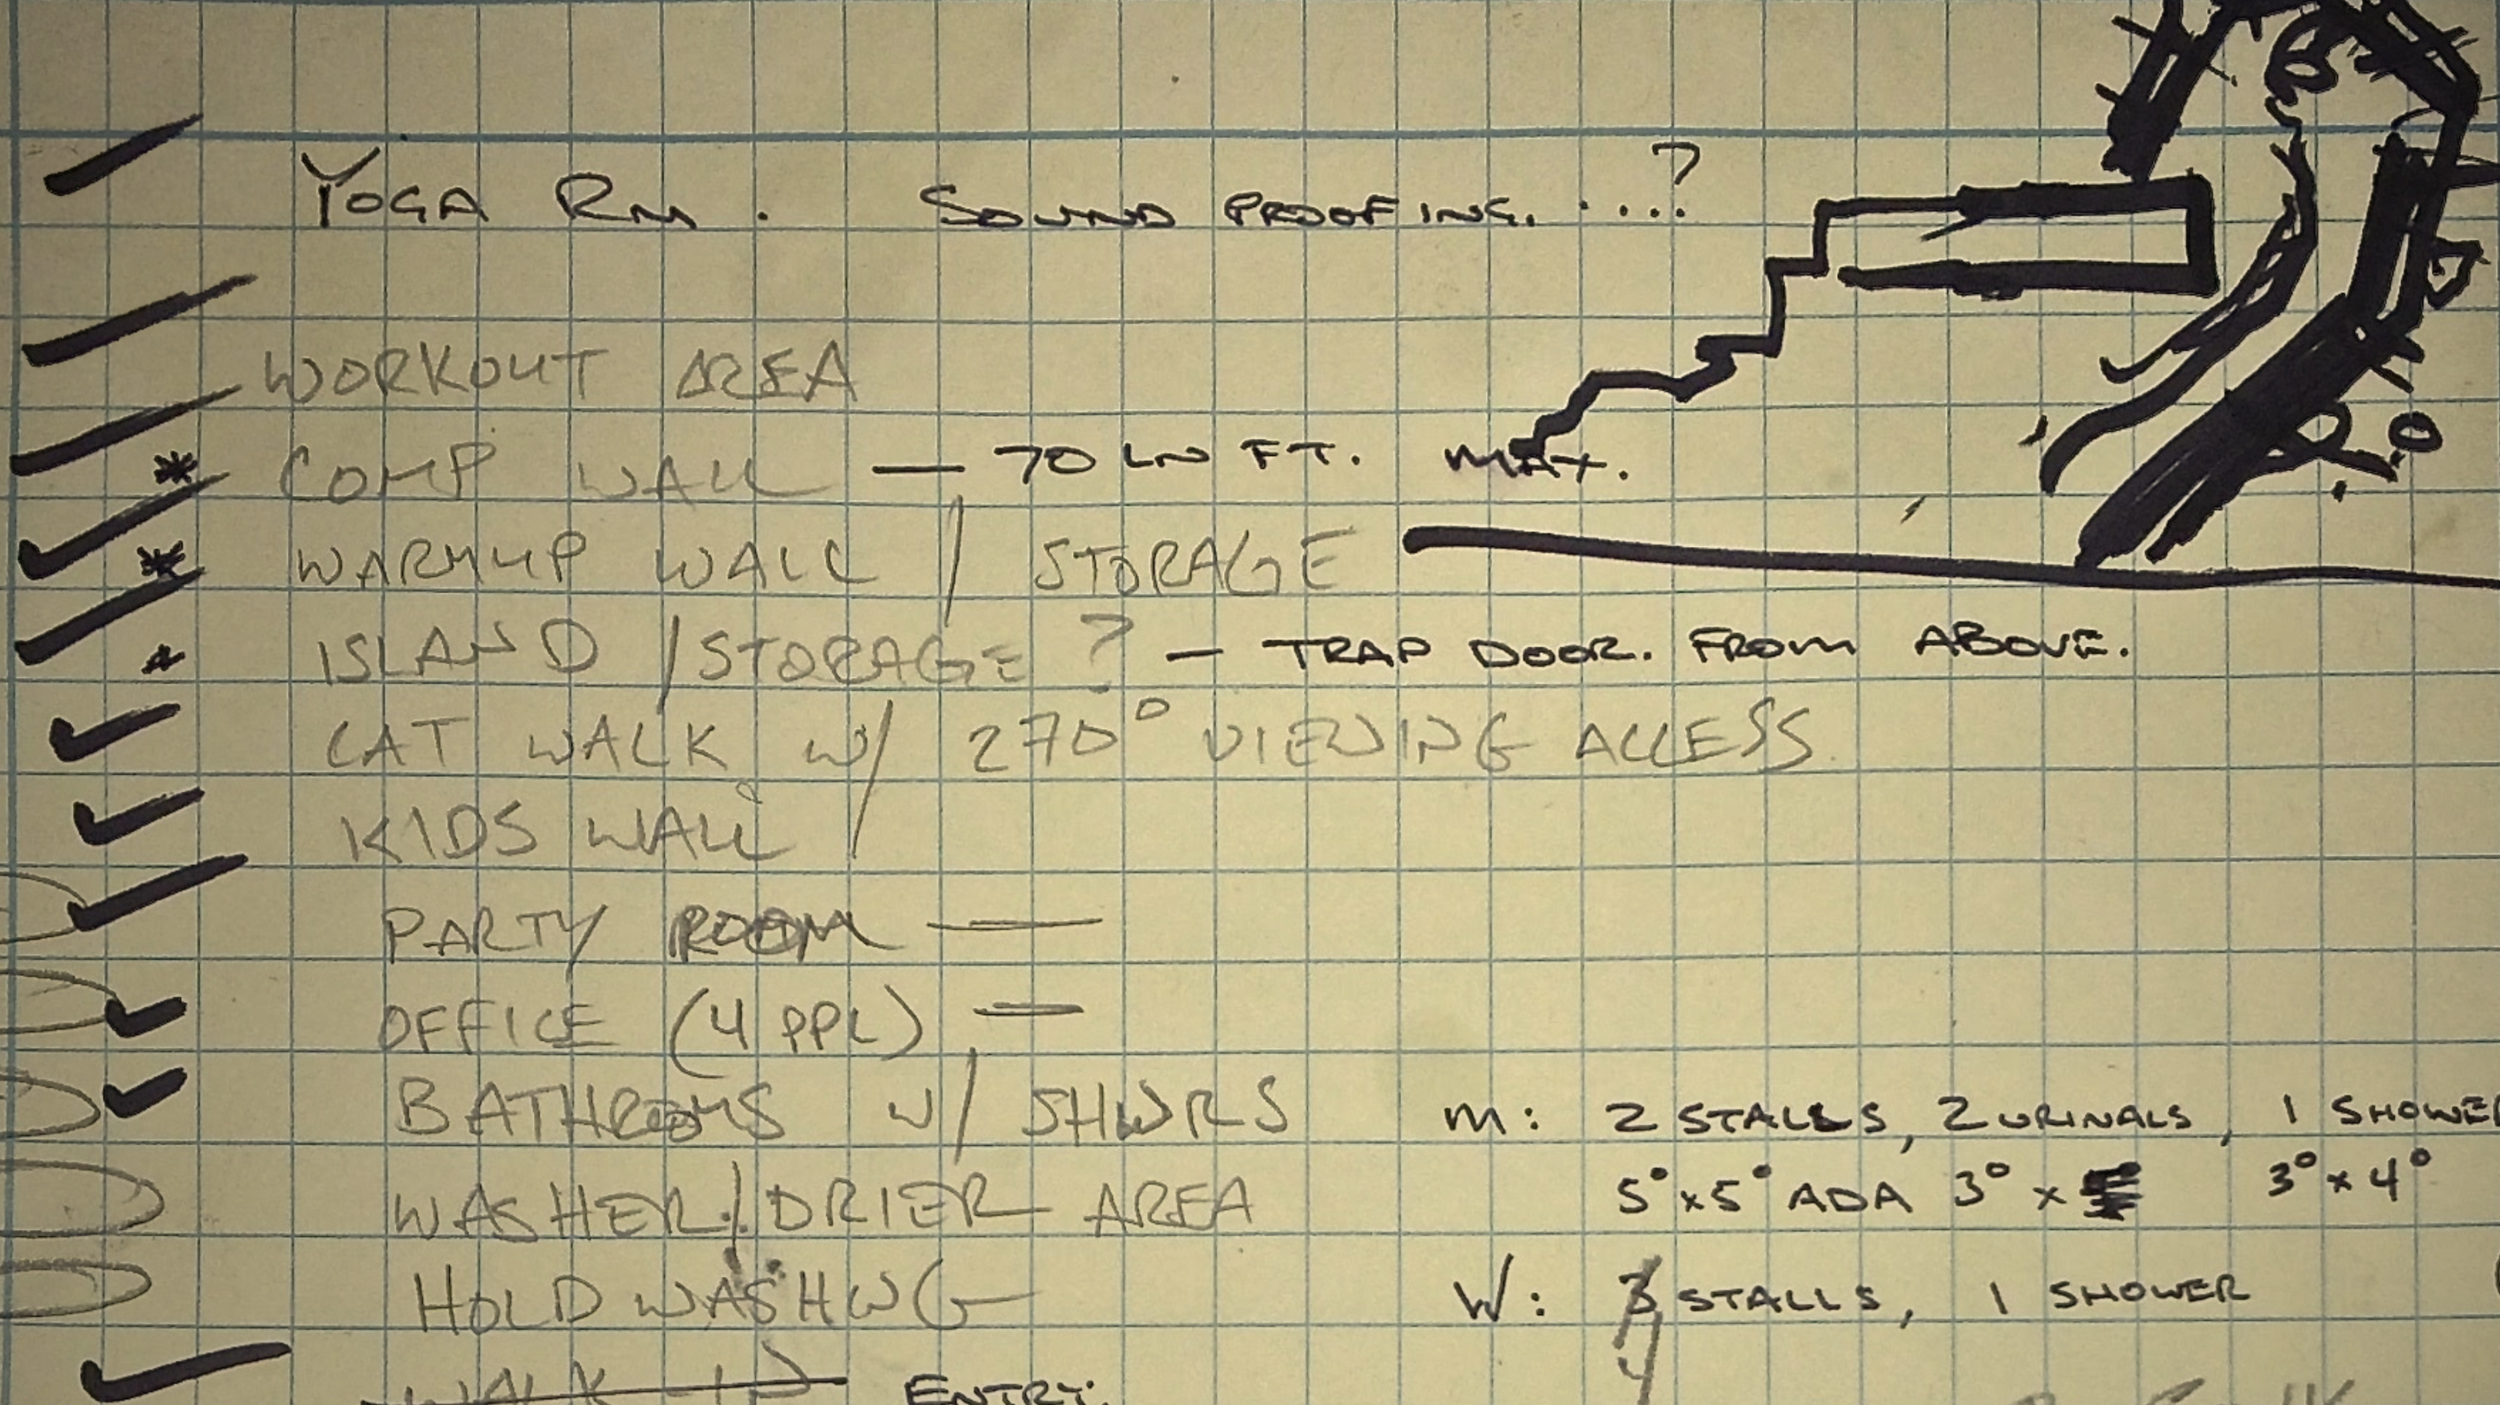 YOGA RM. SOUND PROOFING. ....?
WORKOUT AREA
* COMP WALL — 70 LN FT. MAX.
* WARMUP WALL / STORAGE
* ISLAND / STORAGE ? — TRAP DOOR. FROM ABOVE.
CAT WALK W/ 270° VIEWING ACCESS
KIDS WALL
PARTY ROOM —
OFFICE (4 PPL) —
BATHROOMS W/ SHWRS M: 2 STALLS, 2 URINALS, 1 SHOWER
WASHER/DRIER AREA 5° x 5° ADA 3° x 3° x 4°
HOLD WASHING W: 4 STALLS, 1 SHOWER
WALK IN ENTRY.